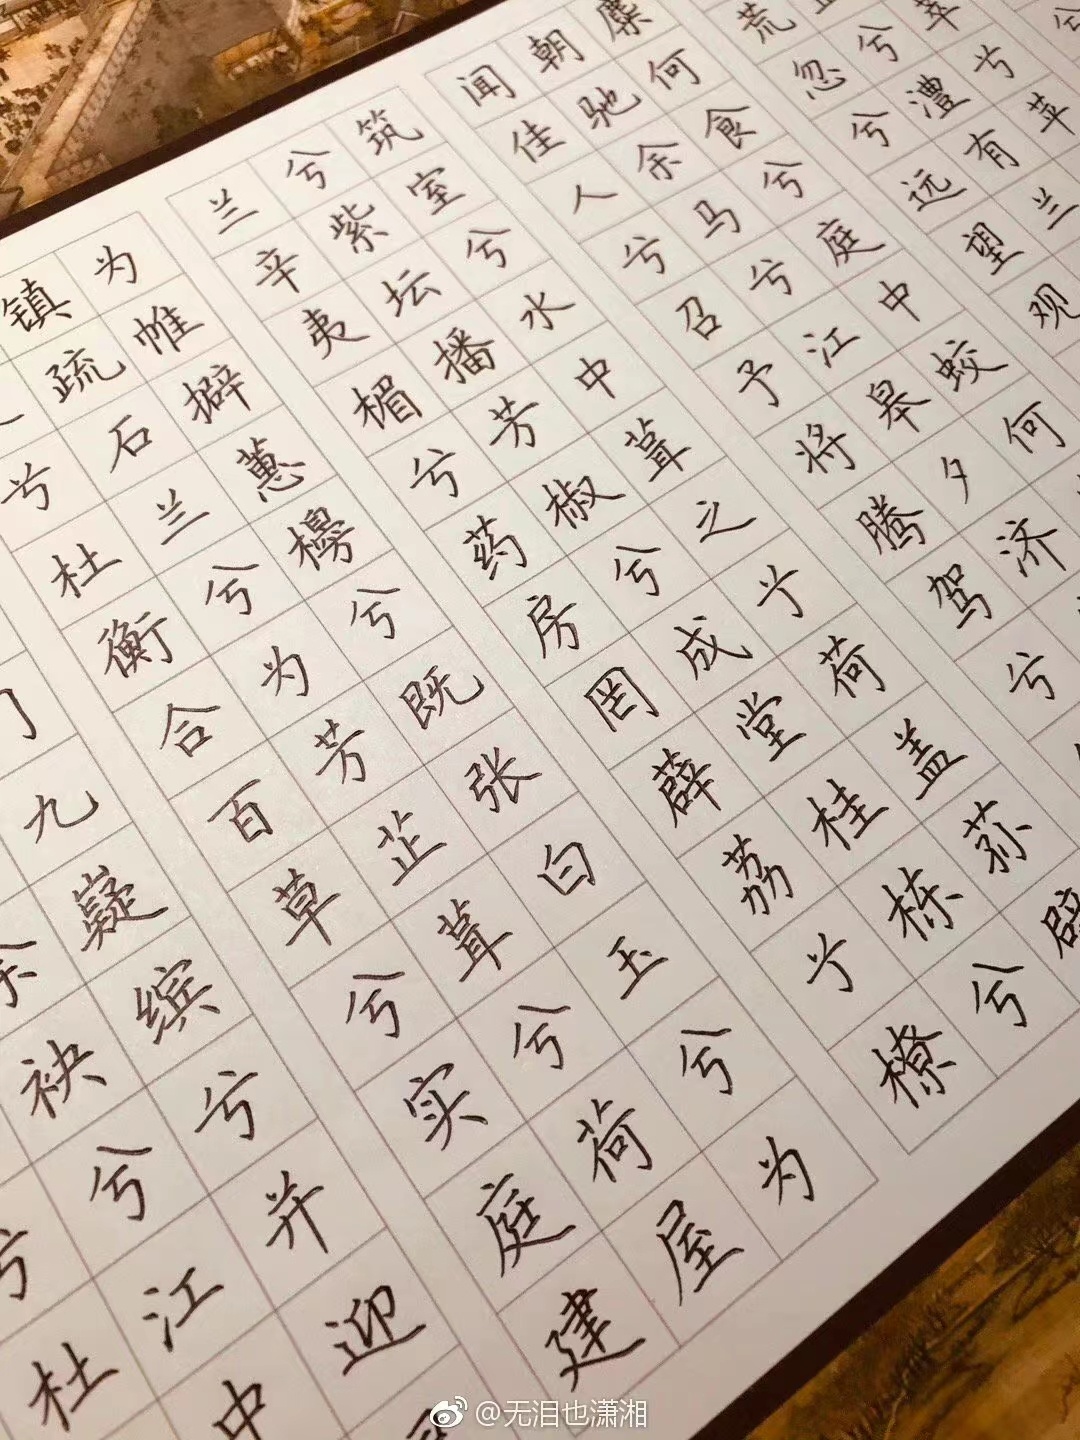 兮
萃兮苹
兮澧有兰
荒忽兮远望观
麋何食兮庭中蛟何
朝驰余马兮江皋夕济兮
闻佳人兮召予将腾驾兮
筑室兮水中葺之兮荷盖荪
兮紫坛播芳椒兮成堂桂栋兮
兰辛夷楣兮药房罔薜荔兮橑
为帷擗蕙櫋兮既张白玉兮为
镇疏石兰兮为芳芷葺兮荷屋
兮杜衡合百草兮实庭建
九嶷缤兮并迎
余袂兮江中
兮杜
@无泪也潇湘